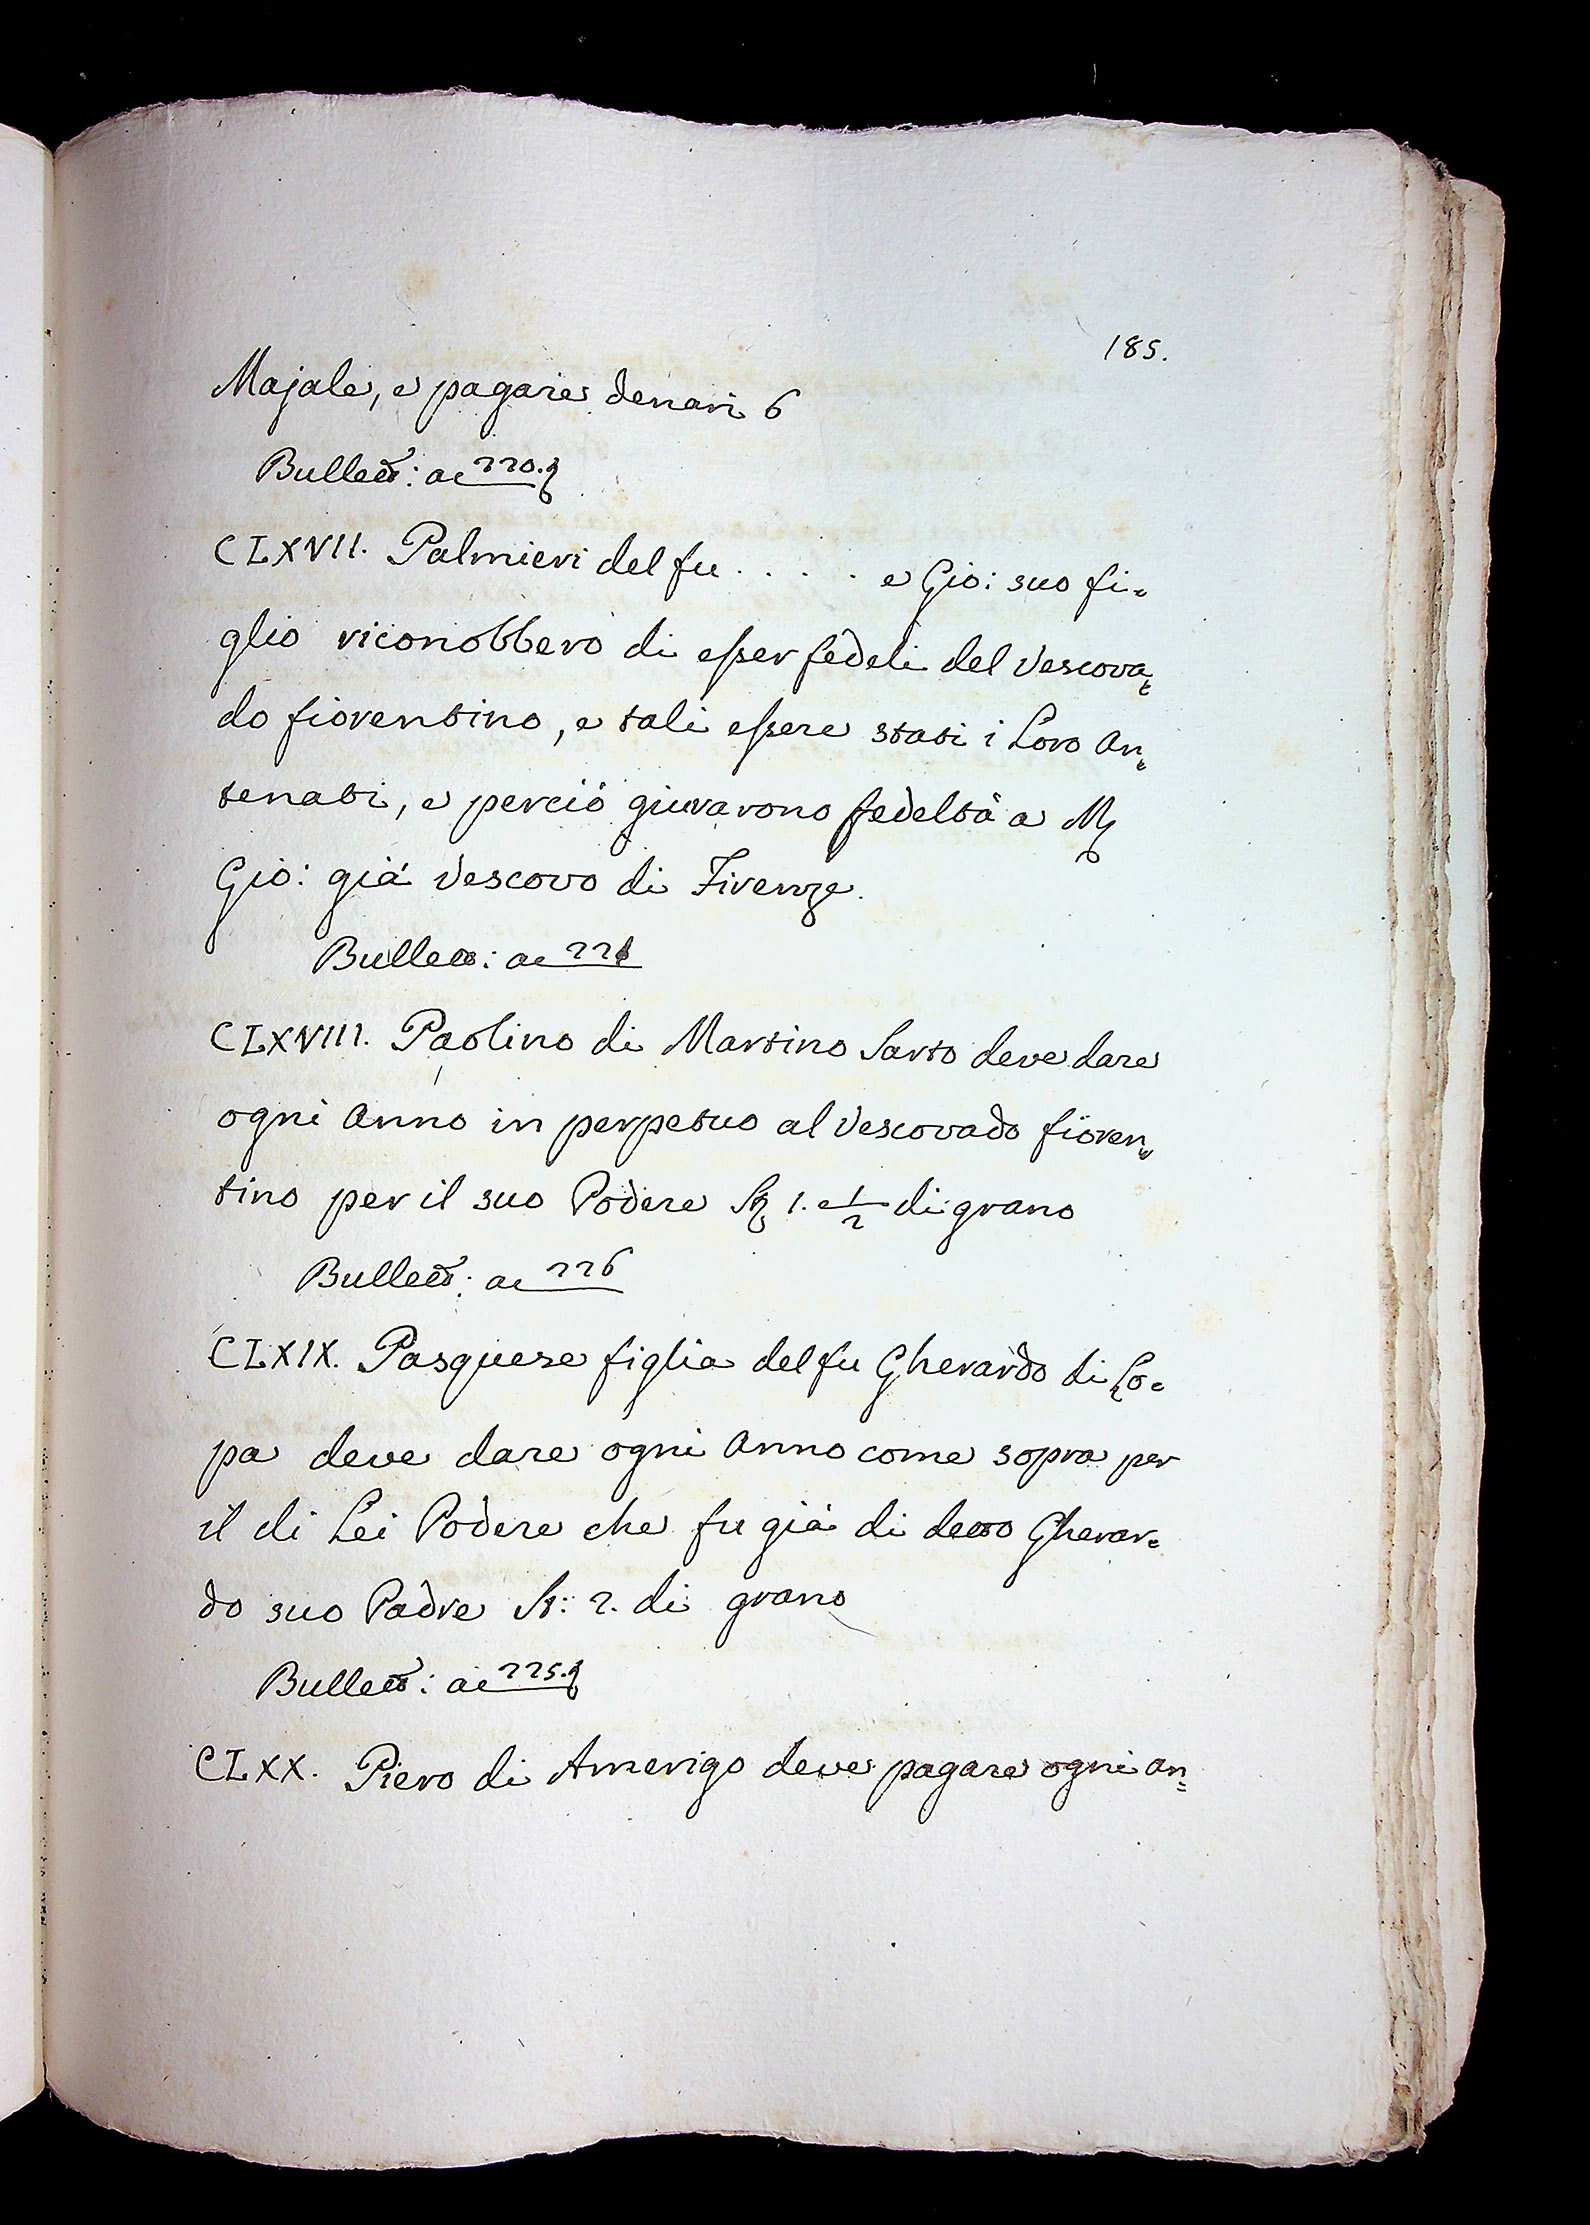 185.
Majale, e pagare denari 6
Bullett: ac 220.
CLXVII. Palmieri del fu . . . . e Gio: suo fi=
glio riconobbero di esser fedeli del Vescova=
do fiorentino, e tali essere stati i Loro An=
tenati, e perciò giurarono fedeltà a M
Gio: già Vescovo di Firenze.
Bullett: ac 221
CLXVIII. Paolino di Martino Sarto deve dare
ogni Anno in perpetuo al Vescovado fioren=
tino per il suo Podere 1. e 1/2 di grano
Bullett: ac 226
CLXIX. Pasquese figlia del fu Gherardo di Lo=
pa deve dare ogni Anno come sopra per
il di Lei Podere che fu già di detto Gherar=
do suo Padre St: 2. di grano
Bullett: ac 225.
CLXX. Piero di Amerigo deve pagare ogni an=